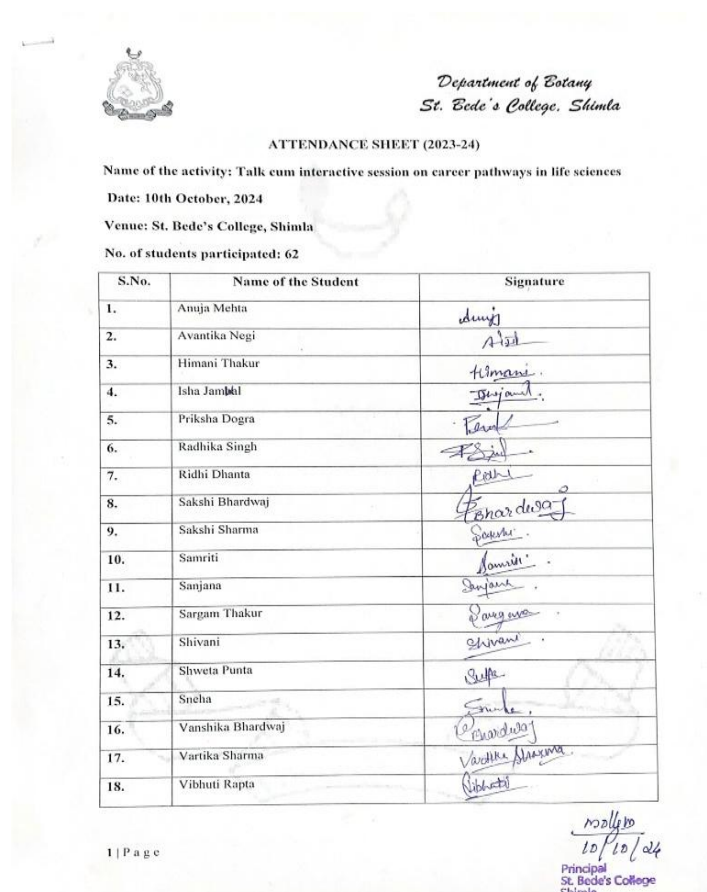 Department of Botany
St. Bede's College, Shimla
ATTENDANCE SHEET (2023-24)
Name of the activity: Talk cum interactive session on career pathways in life sciences
Date: 10th October, 2024
Venue: St. Bede's College, Shimla
No. of students participated: 62
S.No. Name of the Student Signature
1. Anuja Mehta
2. Avantika Negi
3. Himani Thakur Himani.
4. Isha Jambal
5. Priksha Dogra
6. Radhika Singh
7. Ridhi Dhanta Ridhi
8. Sakshi Bhardwaj Bhardwaj
9. Sakshi Sharma Sakshi.
10. Samriti Samriti.
11. Sanjana Sanjana.
12. Sargam Thakur
13. Shivani Shivani.
14. Shweta Punta
15. Sneha
16. Vanshika Bhardwaj Bhardwaj
17. Vartika Sharma Vartika Sharma.
18. Vibhuti Rapta Vibhuti
1 | Page
10/10/24
Principal
St. Bede's College
Shimla